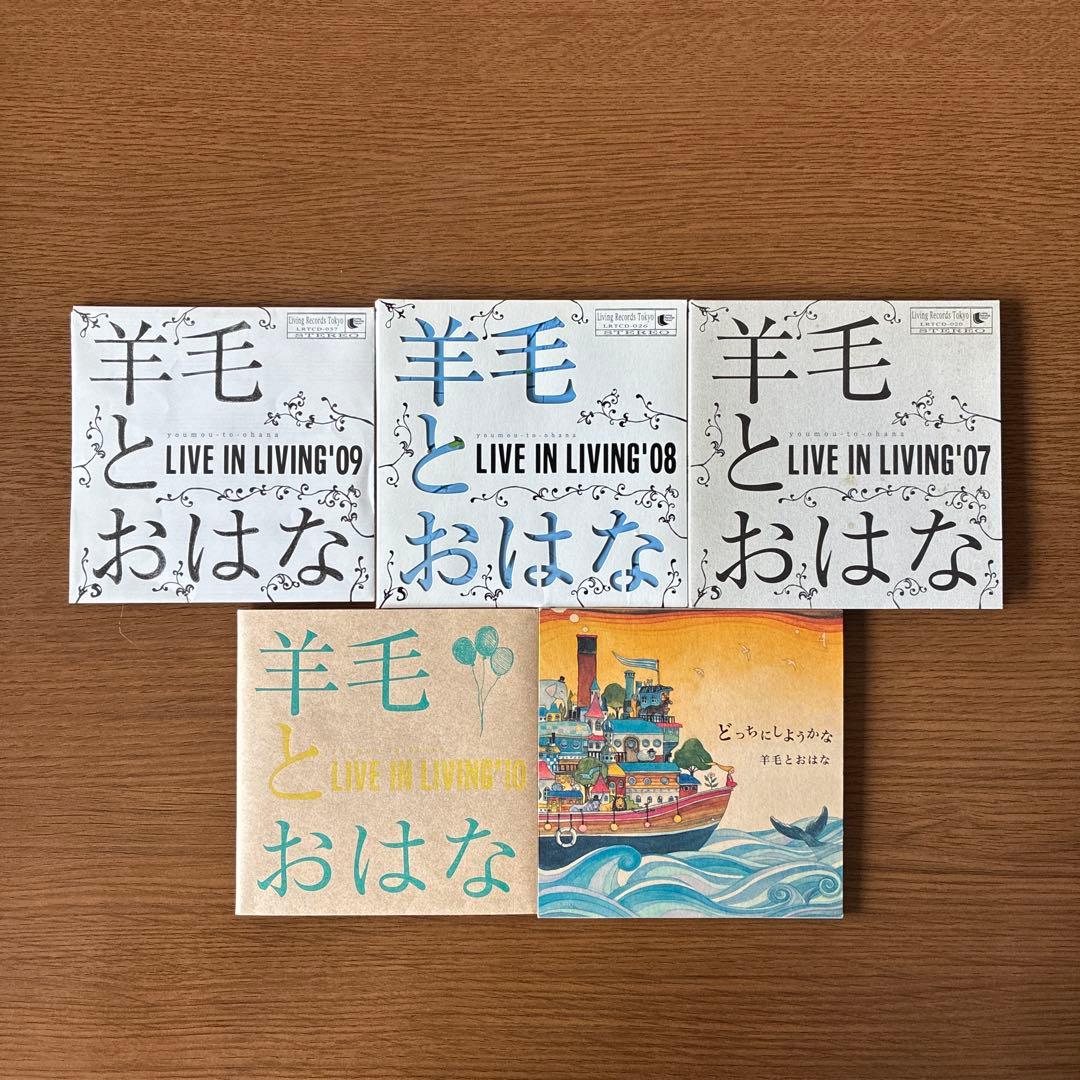 羊毛
と
おはな
youmou-to-ohana
LIVE IN LIVING'09
Living Records Tokyo
LRTCD-037
STEREO
羊毛
と
おはな
youmou-to-ohana
LIVE IN LIVING'08
Living Records Tokyo
LRTCD-026
STEREO
羊毛
と
おはな
youmou-to-ohana
LIVE IN LIVING'07
Living Records Tokyo
LRTCD-020
STEREO
羊毛
と
おはな
youmou-to-ohana
LIVE IN LIVING'10
どっちにしようかな
羊毛とおはな